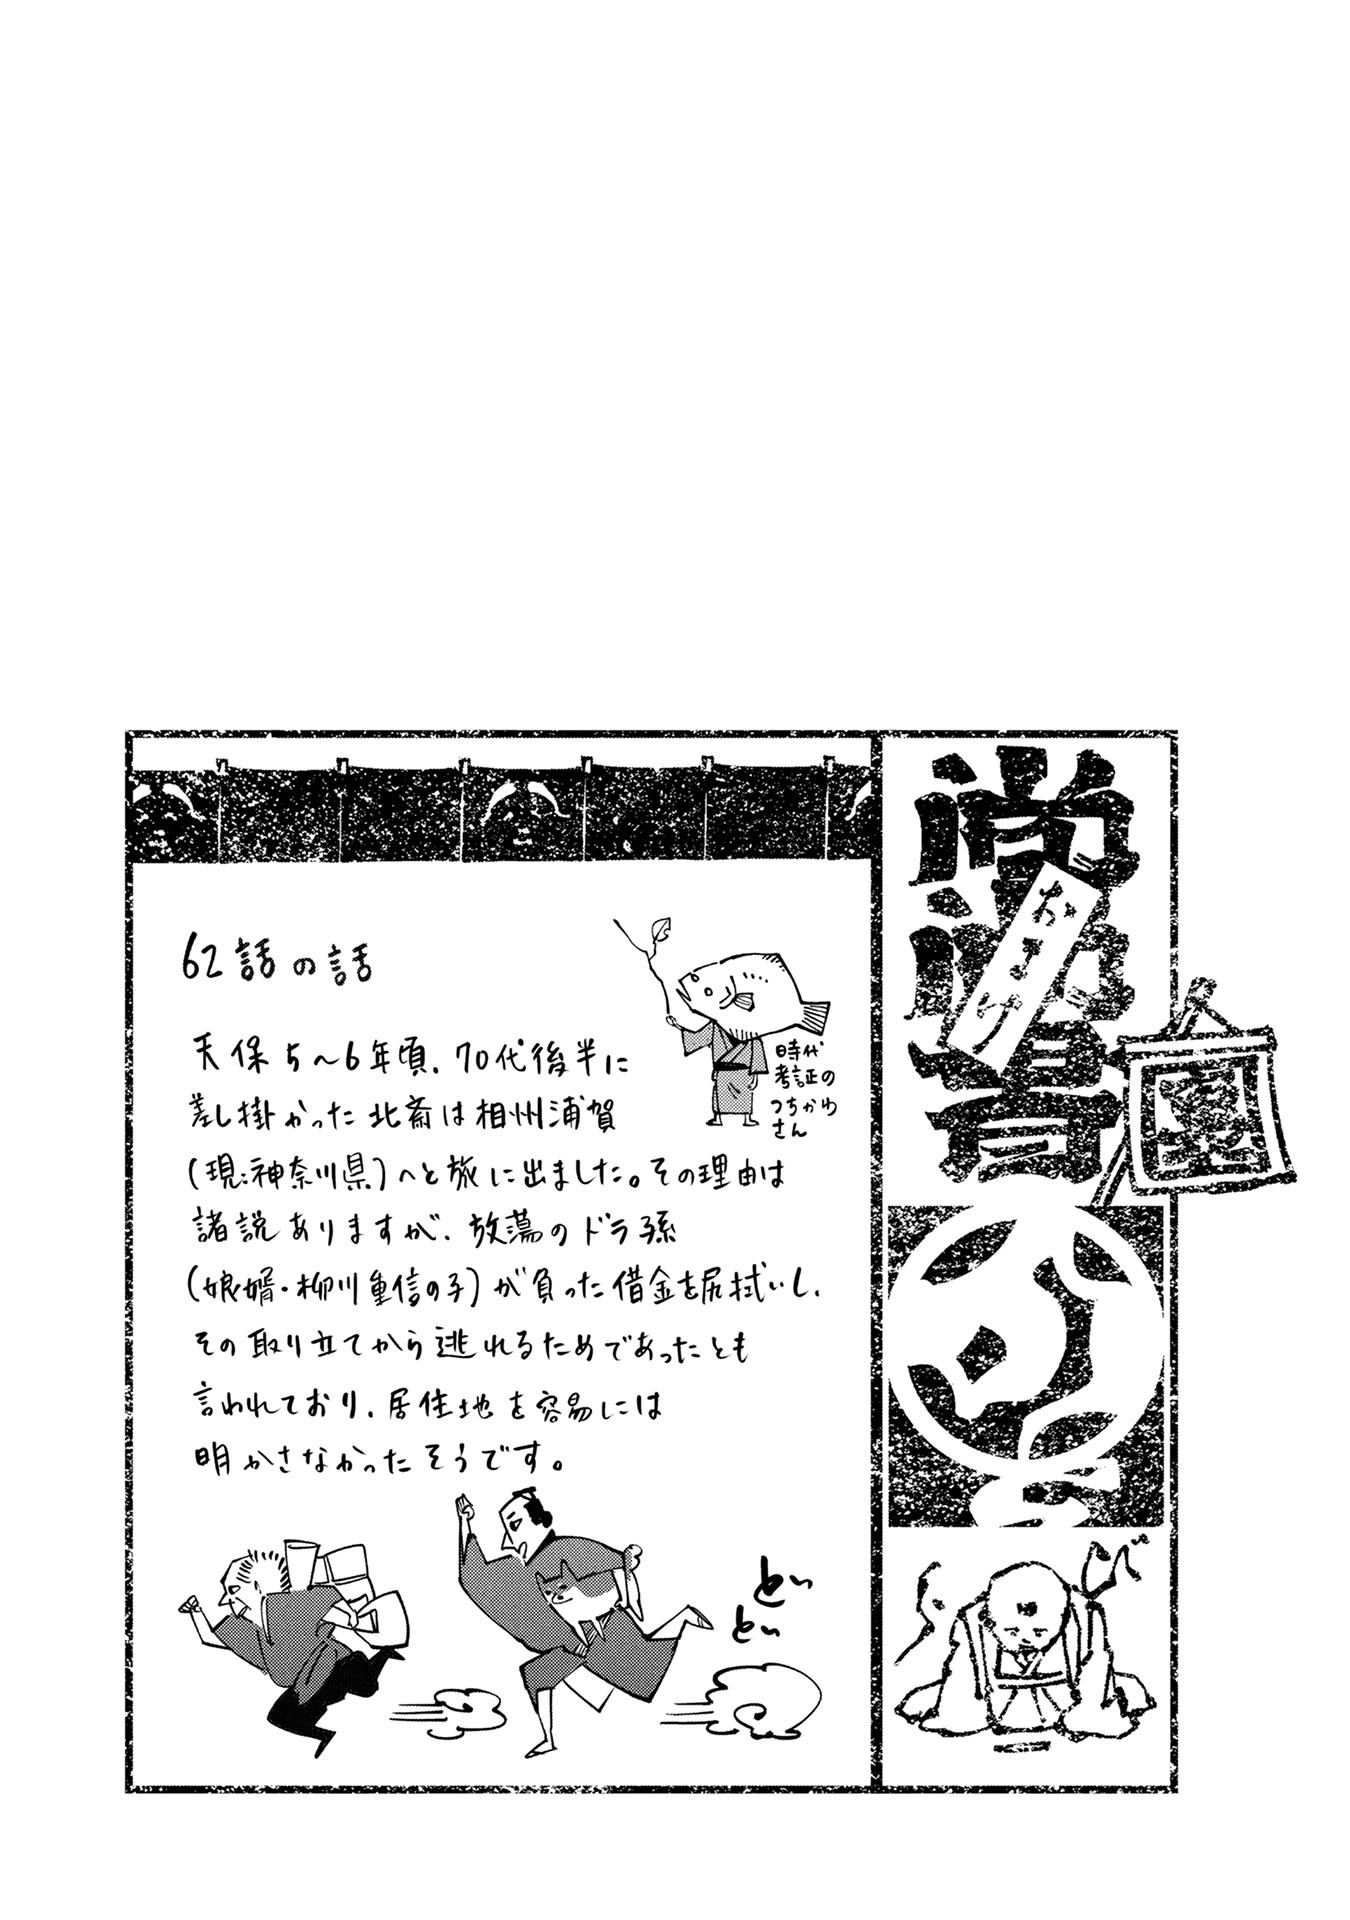 おまけ
62話の話
天保5〜6年頃、70代後半に
差し掛かった北斎は相州浦賀
(現:神奈川県)へと旅に出ました。その理由は
諸説ありますが、放蕩のドラ孫
(娘婿・柳川重信の子)が負った借金を尻拭いし、
その取り立てから逃れるためであったとも
言われており、居住地を容易には
明かさなかったそうです。
時代
考証の
つちかわ
さん
とい
とい